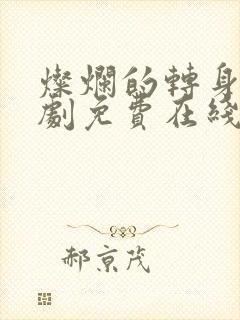 燦爛的轉身
劇免費在綫
郝京茂